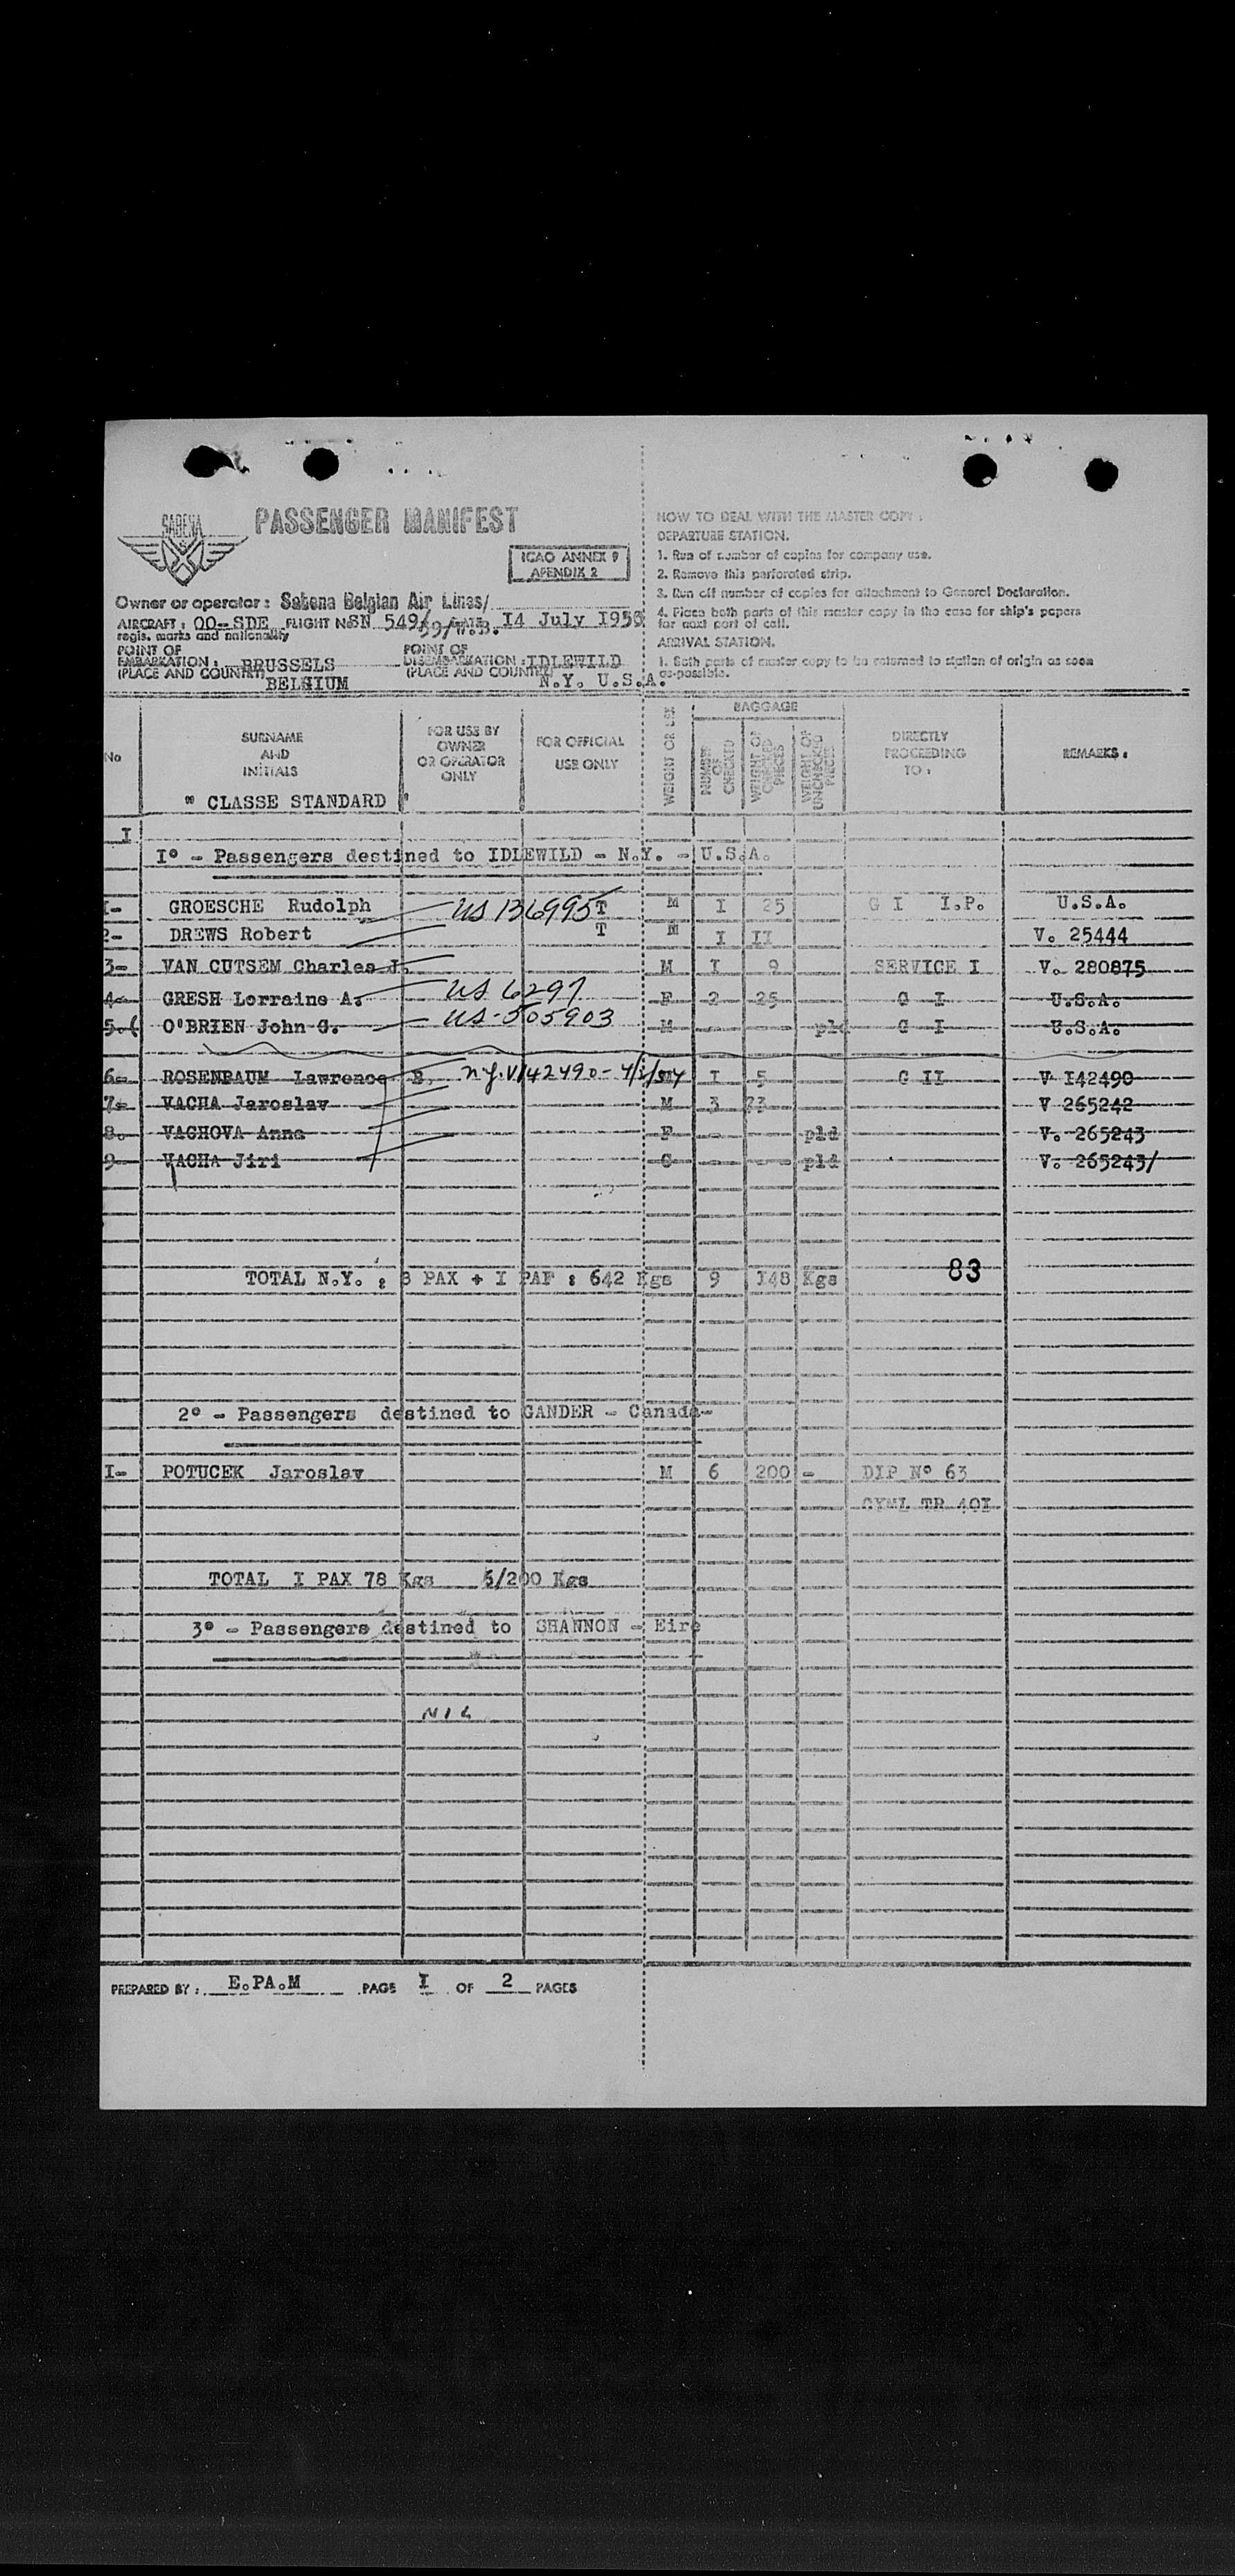 SABENA
PASSENGER MANIFEST
ICAO ANNEX 9
APENDIX 2
Owner or operator: Sabena Belgian Air Lines/
AIRCRAFT: OO-SDE FLIGHT No SN 549/ DATE I4 July 1950
regis. marks and nationality 59/W.B.
POINT OF EMBARKATION: BRUSSELS
(PLACE AND COUNTRY) BELGIUM
POINT OF DISEMBARKATION: IDLEWILD
(PLACE AND COUNTRY) N.Y. U.S.A.
HOW TO DEAL WITH THE MASTER COPY:
DEPARTURE STATION.
1. Run of number of copies for company use.
2. Remove this perforated strip.
3. Run off number of copies for attachment to General Declaration.
4. Place both parts of this master copy in the case for ship's papers
for next port of call.
ARRIVAL STATION.
1. Both parts of master copy to be returned to station of origin as soon
as possible.
No
SURNAME AND INITIALS
FOR USE BY OWNER OR OPERATOR ONLY
FOR OFFICIAL USE ONLY
WEIGHT OR SEX
BAGGAGE
NUMBER OF CHECKED
WEIGHT OF CHECKED PIECES
WEIGHT OF UNCHECKED PIECES
DIRECTLY PROCEEDING TO:
REMARKS:
" CLASSE STANDARD "
I
I° - Passengers destined to IDLEWILD - N.Y. - U.S.A.
I- GROESCHE Rudolph US 136995 T M I 25 G I I.P. U.S.A.
2- DREWS Robert T M I II V. 25444
3- VAN CUTSEM Charles J. M I 9 SERVICE I V. 280875
4- GRESH Lorraine A. US 6297 F 2 25 G I U.S.A.
5.( O'BRIEN John G. US-505903 M - - pld G I U.S.A.
6- ROSENBAUM Lawrence B. N.Y. V142490- 4/3/54 M I 5 G II V I42490
7- VACHA Jaroslav M 3 73 V 265242
8. VACHOVA Anna F - - pld V. 265243
9- VACHA Jiri C - - pld V. 265243/
TOTAL N.Y. : 8 PAX + I PAF : 642 Kgs 9 I48 Kgs 83
2° - Passengers destined to GANDER - Canada-
I- POTUCEK Jaroslav M 6 200 - DIP N° 63
GYML TR 40I
TOTAL I PAX 78 Kgs 6/200 Kgs
3° - Passengers destined to SHANNON - Eire
NIL
PREPARED BY: E.PA.M PAGE I OF 2 PAGES